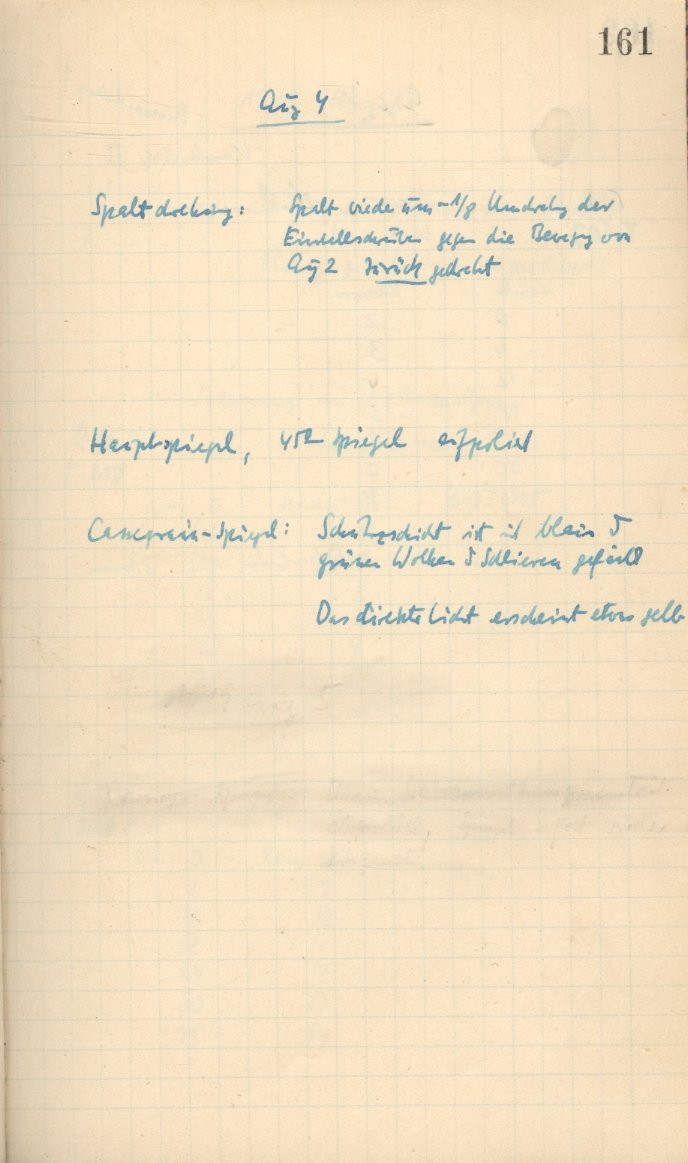 161
Aug 4
Spaltdrehung: Spalt wieder um ~ 1/8 Umdrehg der
Einstellschrauben gegen die Bewegg von
Aug 2 zurück gedreht
Hauptspiegel, 45° Spiegel aufpoliert
Cassegrain-Spiegel: Schutzschicht ist mit blauen
grünen Wolken Schlieren gefärbt
Das direkte Licht erscheint etwas gelb